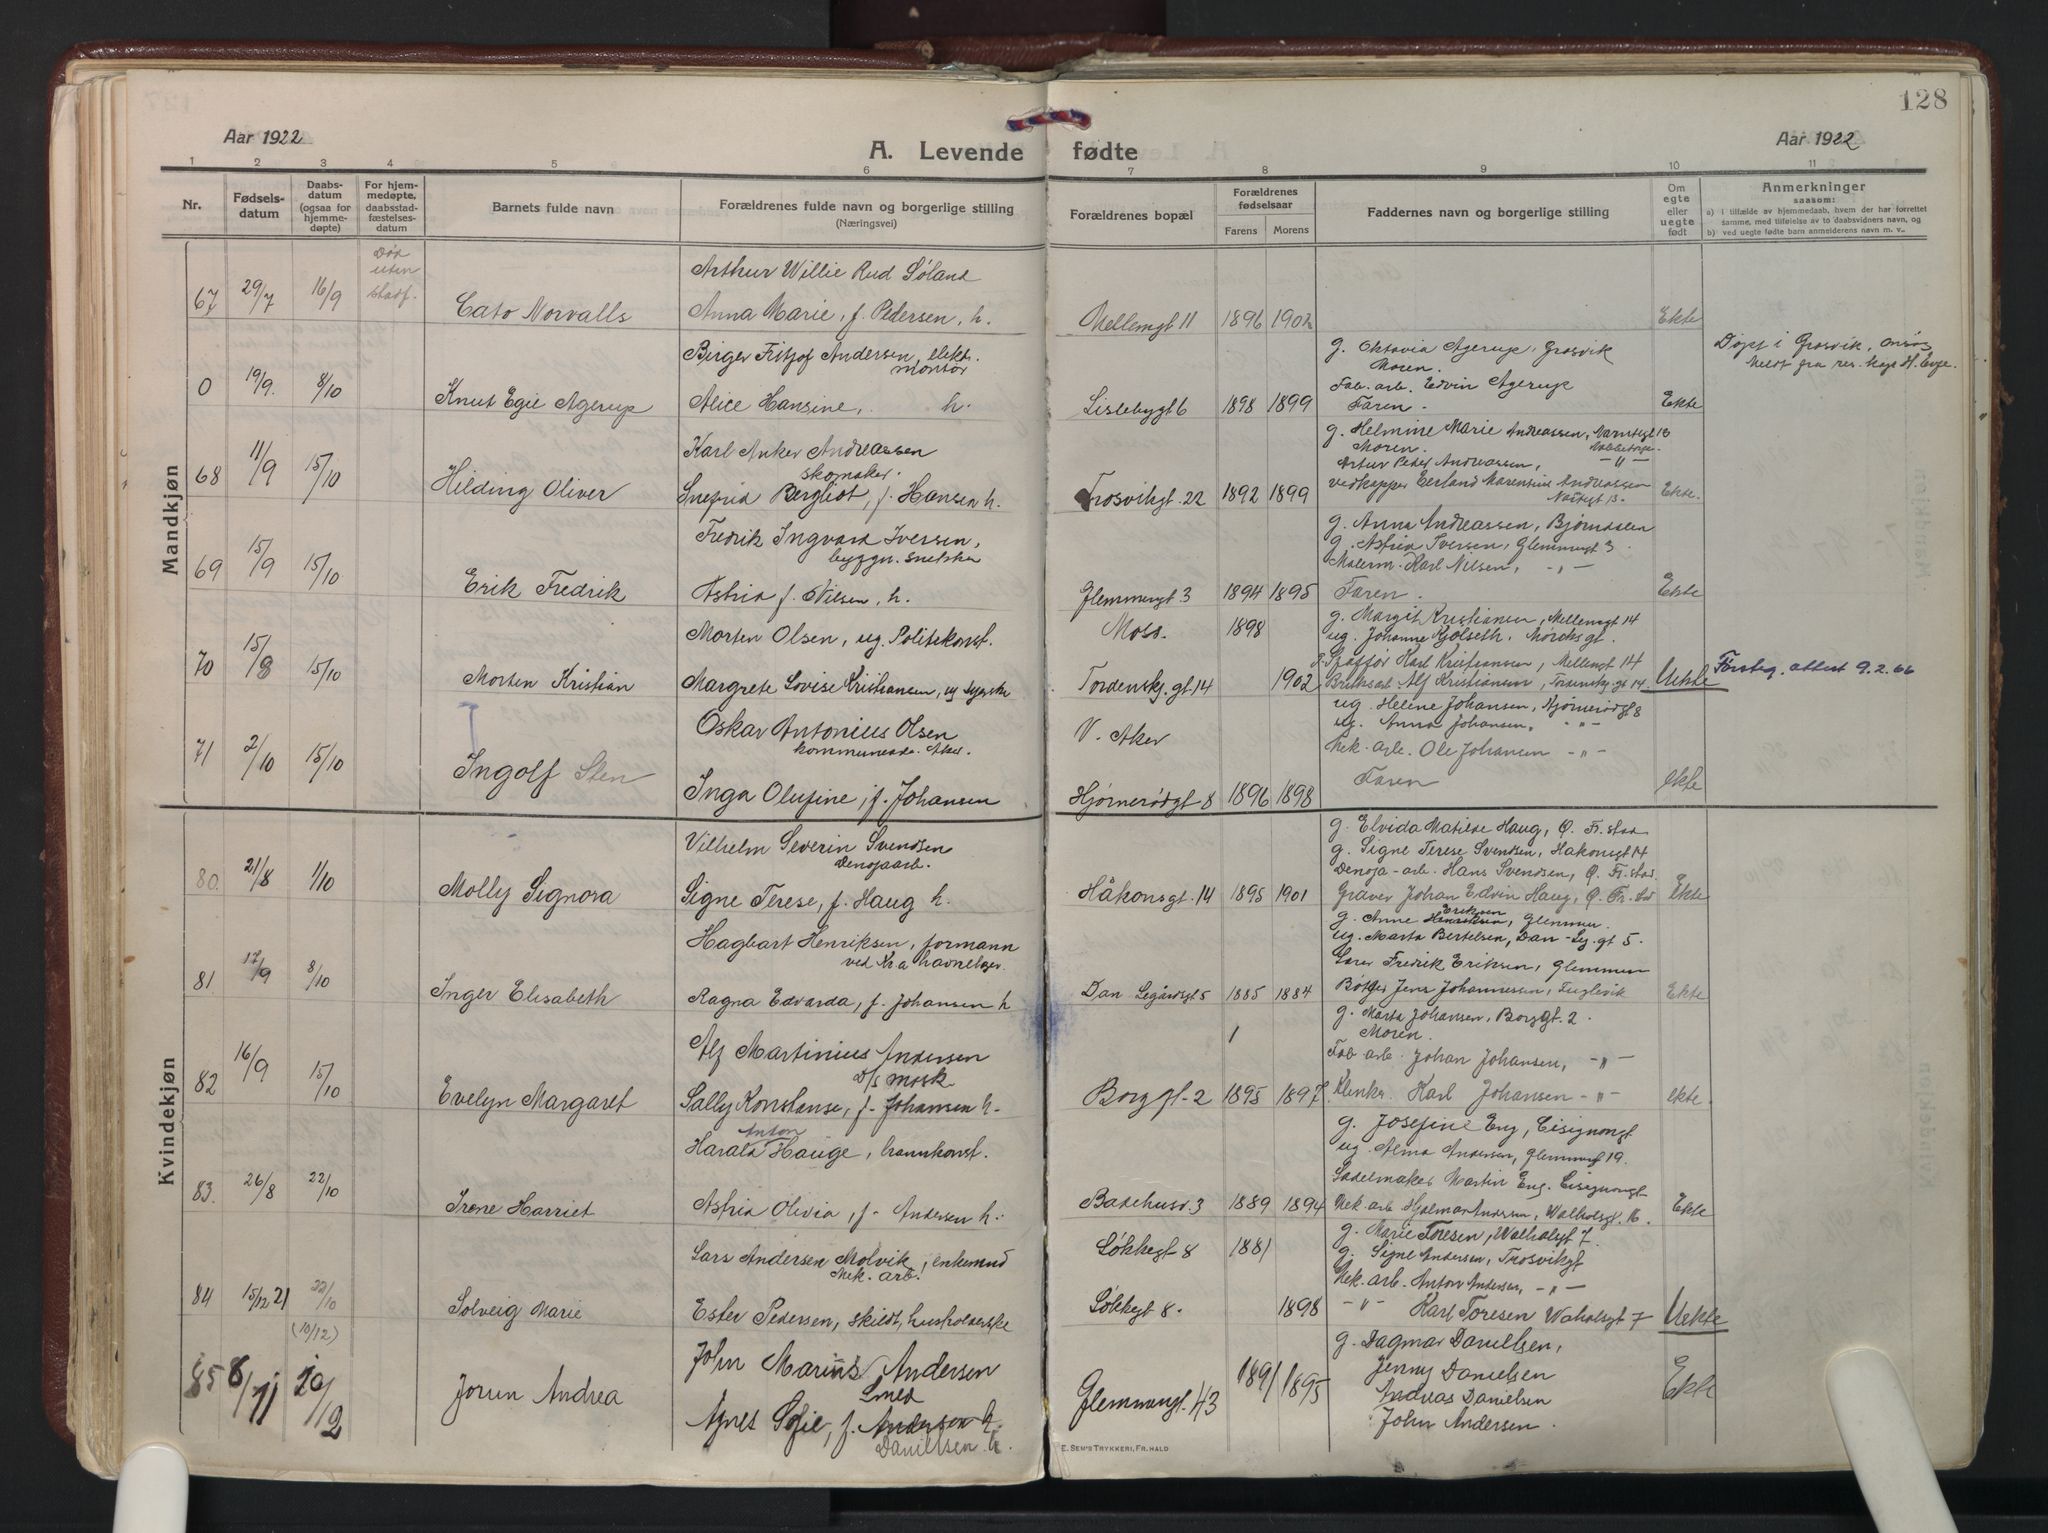 128
Aar 1922
A. Levende fødte
Aar 1922
1 2 3 4 5 6 7 8 9 10 11
Nr.
Fødsels-
datum
Daabs-
datum
(ogsaa for
hjemme-
døpte)
For hjem-
medøpte,
daabsstad-
fæstelses-
datum
Barnets fulde navn
Forældrenes fulde navn og borgerlige stilling
(Næringsvei)
Forældrenes bopæl
Forældrenes
fødselsaar
Farens Morens
Faddernes navn og borgerlige stilling
Om
egte
eller
uegte
født
Anmerkninger
saasom:
a) i tilfælde av hjemmedaab, hvem der har forrettet
samme, med tilføielse av to daabsvidners navn, og
b) ved uegte fødte barn anmelderens navn m. v.
Mandkjøn
Død
uten
stadf.
Arthur Willie Rud Søland
67 29/7 16/9 Cato Norvalls Anna Marie, f. Pedersen, h. Mellemgt 11 1896 1902 Ekte
Birger Fritjof Andersen, elektr.
montør
g. Oktavia Agerup, Grosvik
Moren.
Fab. arb. Edvin Agerup
Døpt i Grosvik, Onsøy
Meldt fra res. kap. H.
0 19/9. 8/10 Knut Egil Agerup Alice Hansine, h. Lislebygt 6 1898 1899 Faren. Ekte
Karl Anker Andreassen
skomaker.
g. Helmine Marie Andreassen,
Moren.
Artur Peder Andreassen, -"-
68 11/9 15/10 Hilding Oliver Snefrid Bergliot, f. Hansen h. Trosvikgt. 22 1892 1899 vedkapper Erland Marensius Andreassen Ekte.
Fredrik Ingvard Iversen,
byggn. snekker
g. Anna Andreassen, Bjørndalen
g. Astrid Iversen, Glemmengt 3.
Malerm. Karl Nilsen, -"-
69 15/9 15/10 Erik Fredrik Astrid f. Nilsen, h. Glemmengt 3 1894 1895 Faren. Ekte
Morten Olsen, ug. Politikonst. Moss. 1898
g. Margit Kristiansen, Mellemgt 14
ug. Johanne Kjølseth,
Kristiansen, Mellemgt 14
70 15/8 15/10 Morten Kristian Margrete Lovise Kristiansen, ug syerske Tordenskj. gt 14 1902 Alf Kristiansen, Tordenskj. gt 14. Uekte Førsteg. attest 9.2.66
Oskar Antonius Olsen
kommunearb. Aker.
V. Aker
ug. Helene Johansen, Hjørnerødgt 8
ug. Anna Johansen, -"-
Mek. arb. Ole Johansen -"-
71 2/10 15/10 Ingolf Sten Inga Olufine, f. Johansen Hjørnerødgt 8 1896 1898 Faren ekte
Kvindekjøn
Vilhelm Severin Svendsen
Denofaarb.
g. Elvida Matilde Haug, Ø. Fr.stad
g. Signe Terese Svendsen, Hakonsgt 14
Denofa-arb. Hans Svendsen, Ø. Fr. stad.
80. 21/8 1/10 Molly Signora Signe Terese, f. Haug h. Håkonsgt. 14 1895 1901 Graver Johan Edvin Haug, Ø. Fr. stad Ekte
Hagbart Henriksen, formann
ved Kra havnelager.
g. Anne Henriksen Eriksen, Glemmen.
ug. Marta Bertelsen, Dan-Leg. gt 5.
Fredrik Eriksen, Glemmen
81. 17/9 8/10 Inger Elisabeth Ragna Edvarda, f. Johansen h Dan Legårdsgt 5 1885 1884 Jens Johannessen, Fuglevik Ekte
Alf Martinius Andersen
D/S Mosk
g. Marta Johansen, Borggt. 2.
Moren.
Fab arb. Johan Johansen, -"-
82 16/9 15/10 Evelyn Margaret Sally Konstanse, f. Johansen h. Borggt. 2 1895 1897 Klinkr. Karl Johansen -"- ekte.
Harald Anton Hauge,
g. Josefine Eng, Cisignongt
ug. Alma Andersen, Glemmengt 19.
Sadelmaker Martin Eng. Cisignongt
83. 26/8 22/10 Irene Harriet Astrid Olivia, f. Andersen h. Badehusv. 3 1889 1894 Mek. arb Hjalmar Andersen, Walhalsgt. 16. Ekte
Lars Andersen Molvik, enkemnd
Mek. arb.
Løkkegt 8 1881
g. Marie Toresen, Walhalsgt 7.
g. Signe Andersen, Trosvikgt
Mek. arb. Anton Andersen, -"-
84 15/12 21 22/10 Solveig Marie Ester Pedersen, skildt, husholderske Løkkegt 8. 1898 -"- Karl Toresen Walhalsgt 7 Uekte
(10/12)
John Marius Andersen
Smed
g. Dagmar Daniellsen,
Jenny Danielsen
Andreas Danielsen
John Andersen.
85 8/11 10/12 Jorun Andrea Agnes Sofie, f. Andersen h. Glemmengt. 43 1891 1895 Ekte
Daniellsen h.
E. SEM'S TRYKKERI, FR. HALD